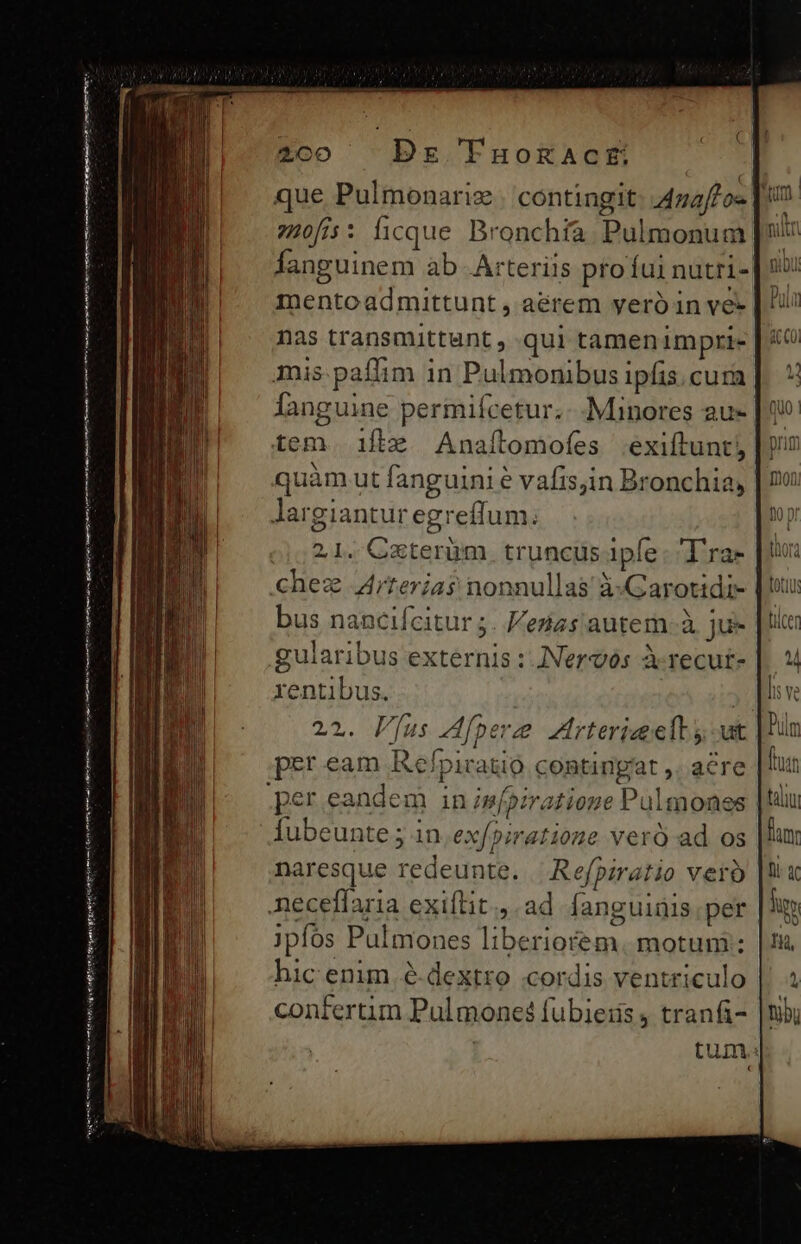 200 DE THORACE.
que Pulmonariæ contingit Anaſto-
moſis: ſicque Bronchia Pulmonum
ſanguinem ab Arteriis pro ſui nutri-
mento admittunt, aërem verò in ve-
nas transmittunt, qui tamen impri-
mis paſſim in Pulmonibus ipſis cum
ſanguine permiſcetur. Minores au-
tem iſtæ Anaſtomoſes exiſtunt,
quàm ut ſanguini è vaſis, in Bronchia,
largiantur egreſſum.
21. Cæterùm truncus ipſe Tra-
cheæ Arterias nonnullas à Carotidi-
bus nanciſcitur; Venas autem à ju-
gularibus externis: Nervos à recur-
rentibus.
22. Vſus Aſperæ Arteriæ eſt, ut
per eam Reſpiratio contingat, aëre
per eandem in inſpiratione Pulmones
ſubeunte; in exſpiratione verò ad os
naresque redeunte. Reſpiratio verò
neceſſaria exiſtit, ad ſanguinis per
ipſos Pulmones liberiorem motum:
hic enim è dextro cordis ventriculo
confertim Pulmones ſubiens, tranſi-
tum